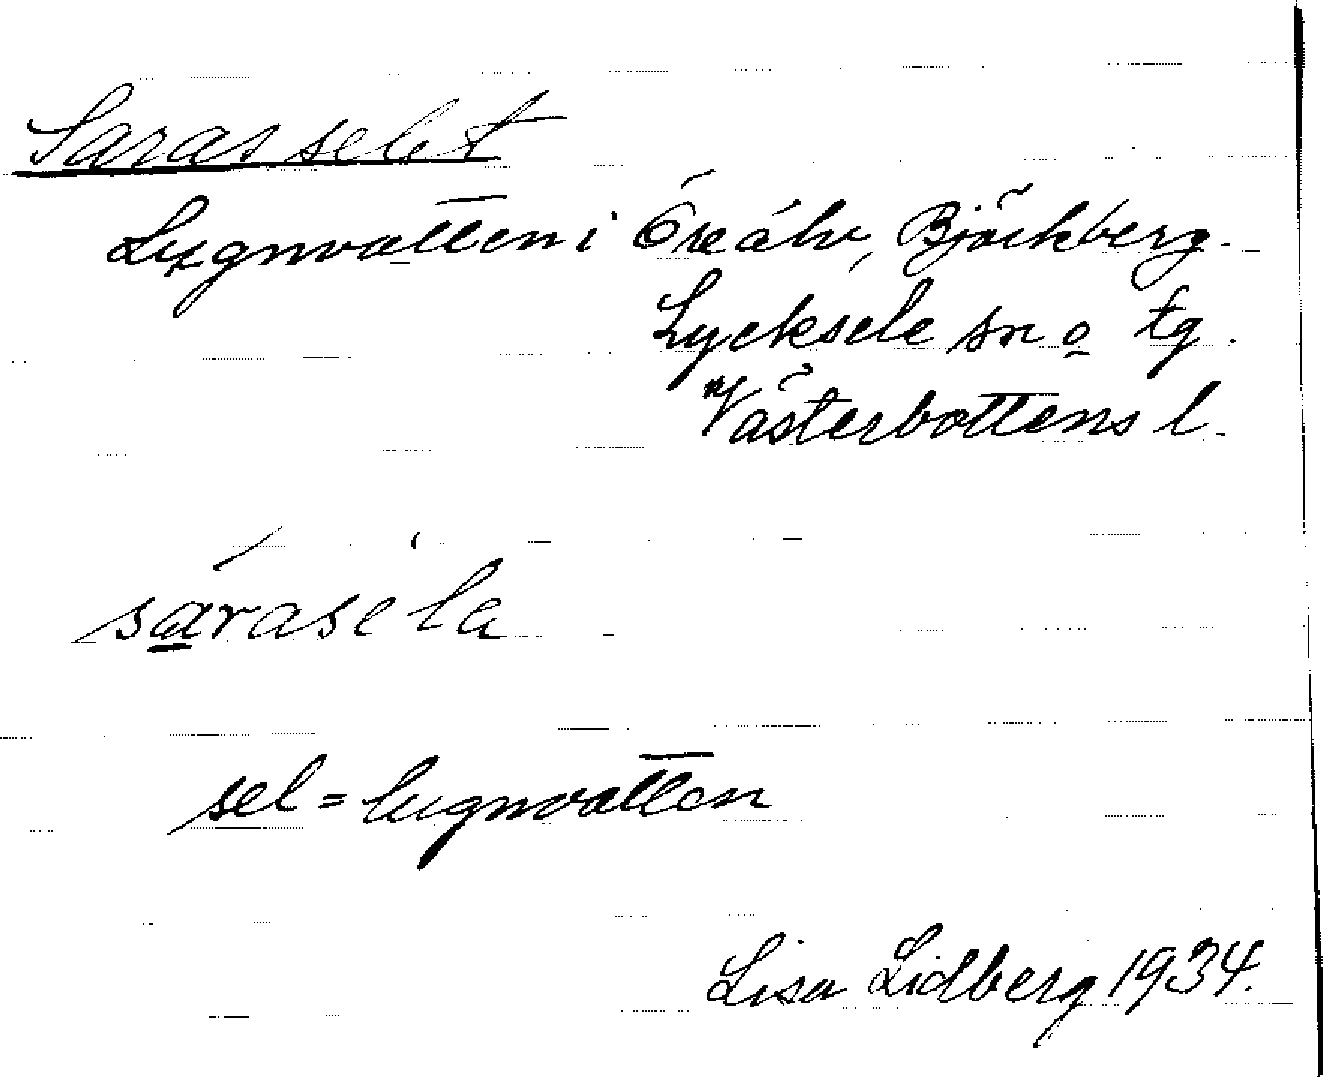 Sarasselet
Lugnvatten i Öreälv, Björkberg.
Lycksele sn o tg.
Västerbottens l.
sárasèla
sel = lugnvatten
Lisa Lidberg 1934.